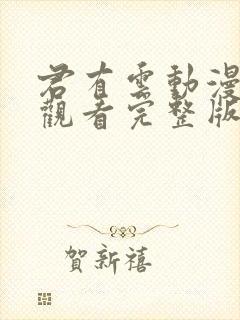 君有雲動漫
觀看完整版
賀新禧